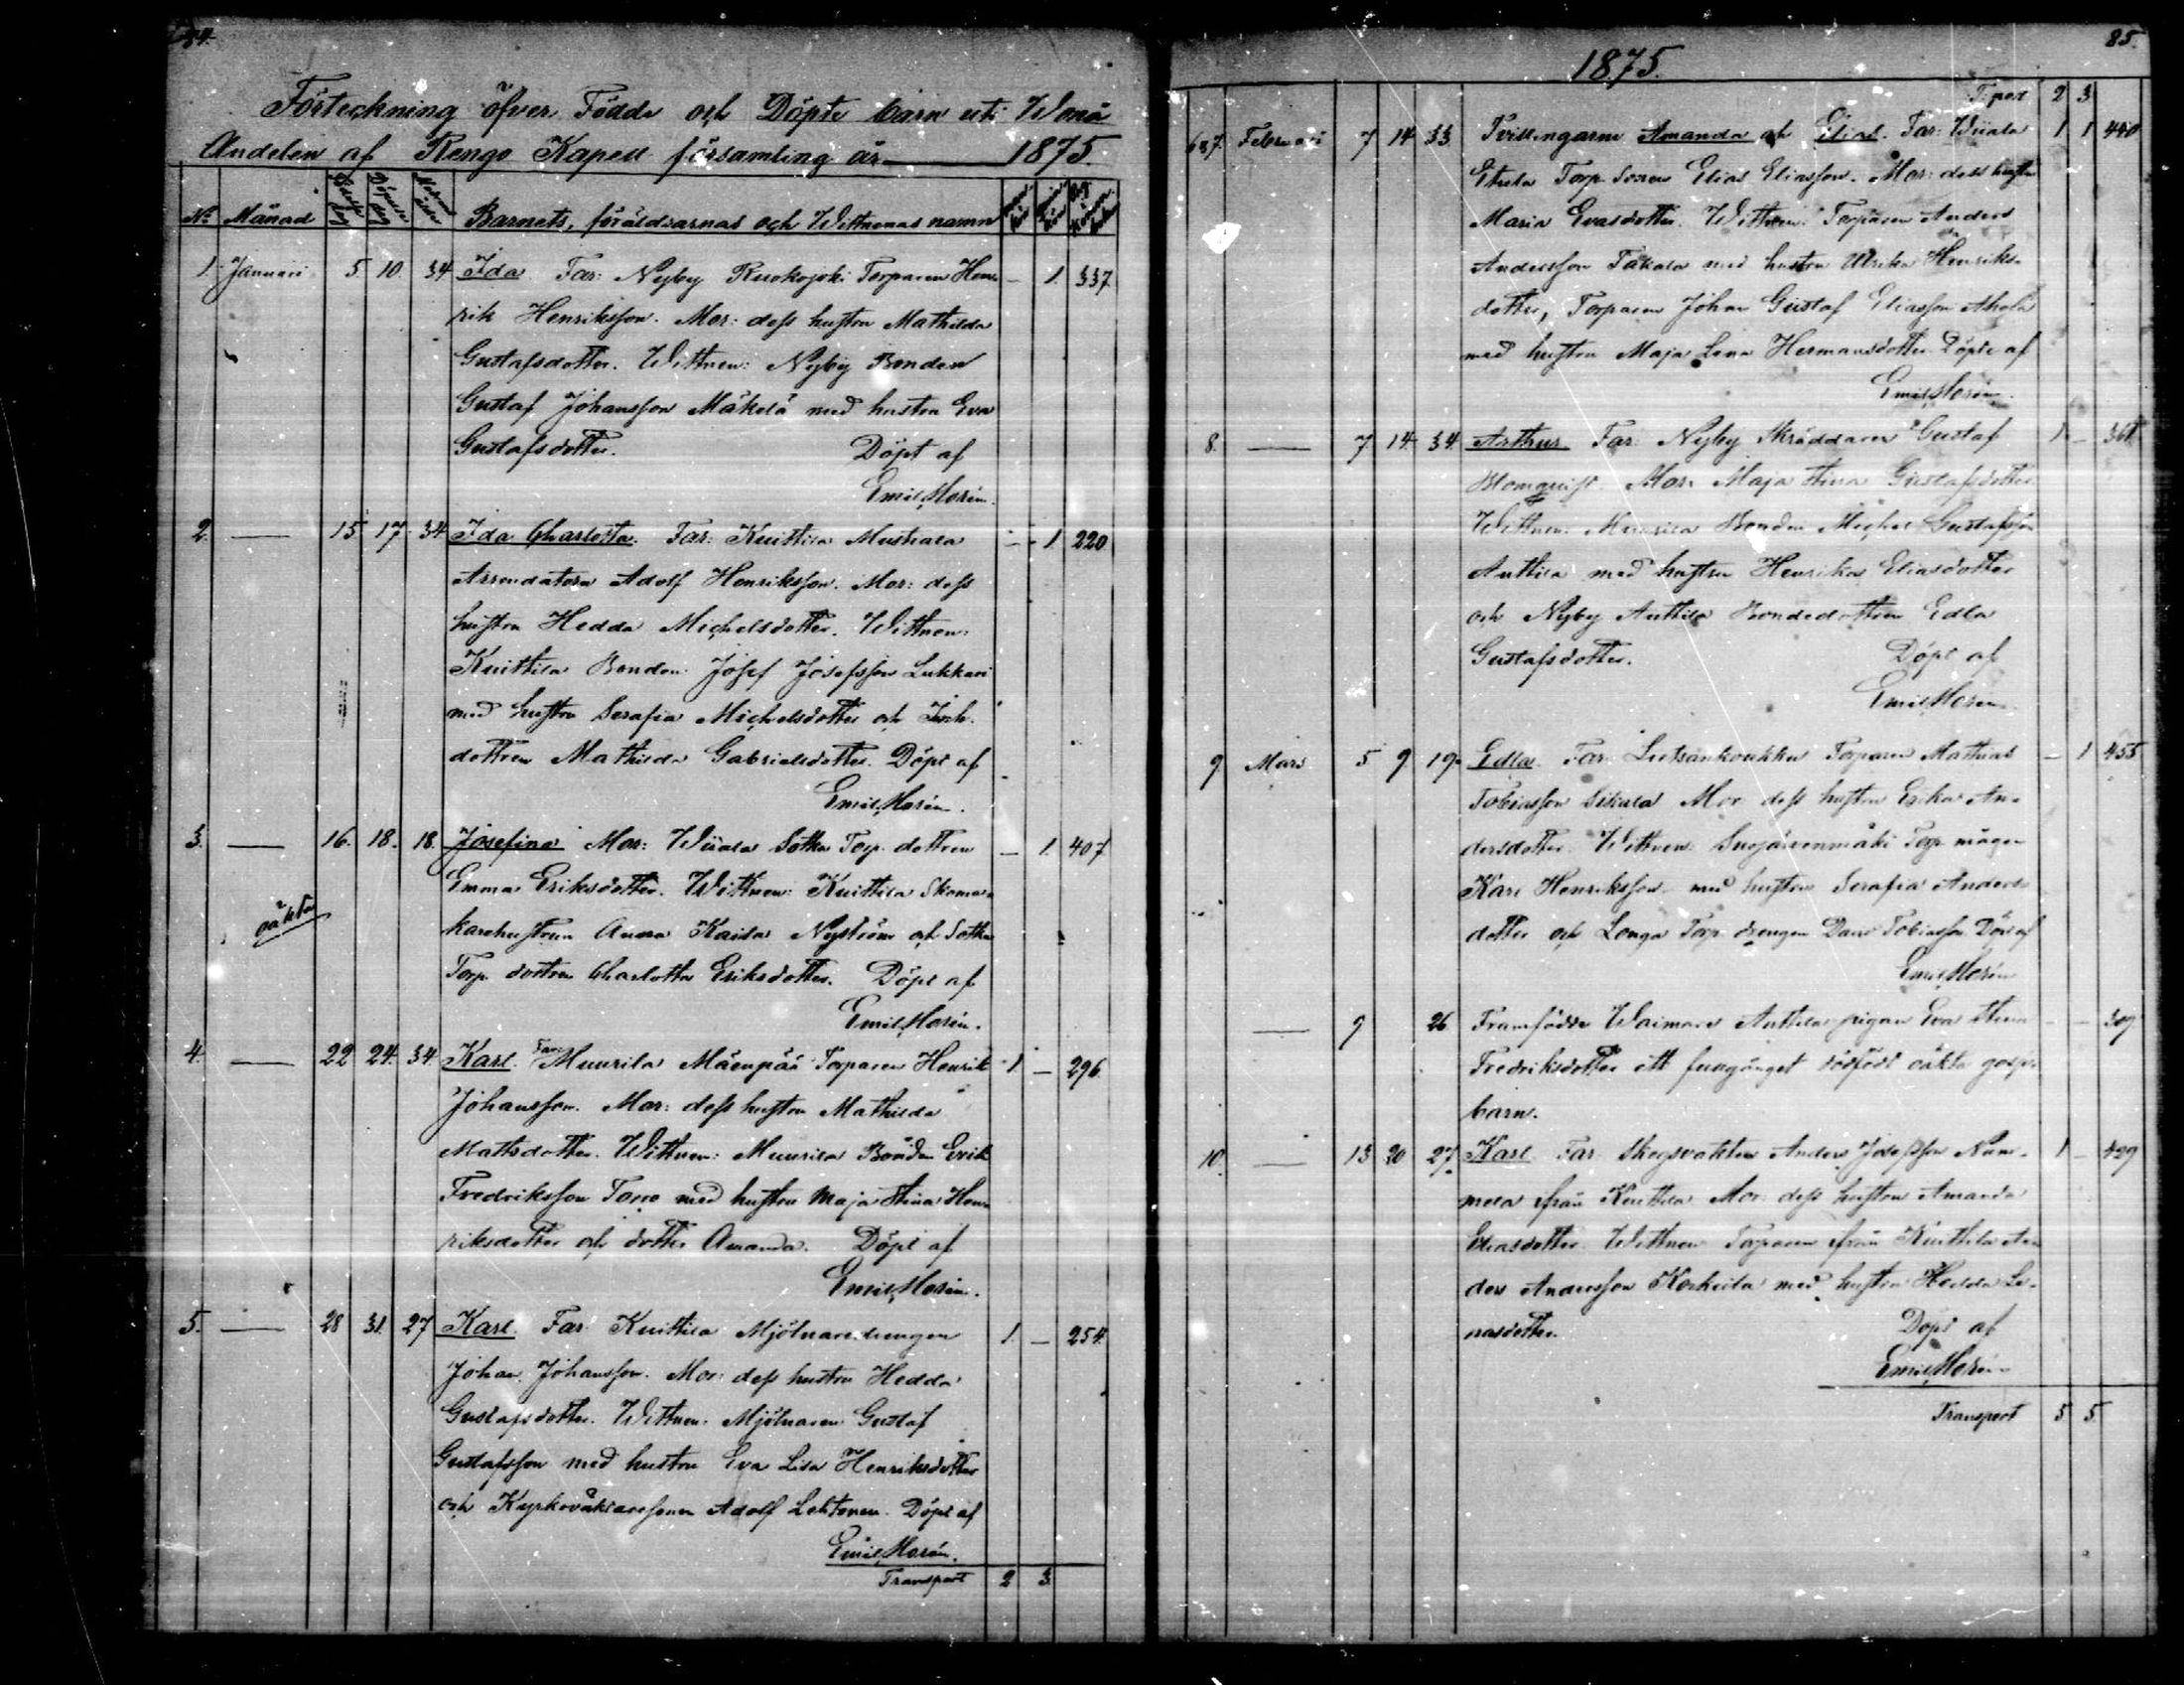 84.
Förteckning öfver Födde och Döpte barn uti Wånå
Andelen af Rengo Kapell församling år 1875
No Månad Födelse dag Döpelse dag Moderns ålder Barnets, föräldrarnas och Wittnenas namn
1. Januari 5. 10. 34 Ida Far: Nyby Ruokojoki Torparen Hen- — 1. 337
rik Henriksson. Mor: dess hustru Mathilda
Gustafsdotter. Wittnen: Nyby Bonden
Gustaf Johansson Mäkelä med hustru Eva
Gustafsdotter. Döpt af
Emil Morén.
2. — 15 17. 34 Ida Charlotta. Far: Knittilä Mustiala — 1. 220
Arrendatorn Adolf Henriksson. Mor: dess
hustru Hedda Michelsdotter. Wittnen:
Knittilä Bonden Josef Josefsson Lukkari
med hustru Serafia Michelsdotter och Inh.
dottren Mathilda Gabrielsdotter. Döpt af
Emil Morén.
3. — 16. 18. 18. Josefina Mor: Wiiala Sotka Torp. dottren — 1. 407
Emma Eriksdotter. Wittnen: Knittilä Skoma-
oäkta
karehustrun Anna Kaisa Nyström och Sotka
Torp. dottren Charlotta Eriksdotter. Döpt af
Emil Morén.
4. — 22 24. 34. Karl. Far: Muurila Mäenpää Torparen Henrik 1 — 296.
Johansson. Mor: dess hustru Mathilda
Mattsdotter. Wittnen: Muurila Bonden Erik
Fredriksson Torro med hustru Maja Stina Hen-
riksdotter och dotter Amanda. Döpt af
Emil Morén.
5. — 28 31. 27 Karl. Far Knittilä Mjölnaredrengen 1. — 254.
Johan Johansson. Mor: dess hustru Hedda
Gustafsdotter. Wittnen. Mjölnaren Gustaf
Gustafsson med hustru Eva Lisa Henriksdotter
och Kyrkoväktaresonen Adolf Lehtonen. Döpt af
Emil Morén.
Transport 2 3
85.
1875.
T:port 2 3
6&7. Februari 7 14 33. Tvillingarne Amanda och Elias. Far: Wiiala 1 1 440
Torp. Sonen Elias Eliasson. Mor: dess hustru
Maria Evasdotter. Wittnen: Torparen Anders
Andersson Takala med hustru Ulrika Henriks-
dotter, Torparen Johan Gustaf Eliasson Ahola
med hustru Maja Lena Hermansdotter Döpte af
Emil Morén.
8. — 7. 14. 34. Arthur Far: Nyby Skräddaren Gustaf 1 — 361.
Blomqvist Mor: Maja Stina Gustafsdotter
Wittnen: Muurila Bonden Michel Gustafsson
Anttila med hustru Henrika Eliasdotter
och Nyby Anttila Bondedottren Edla
Gustafsdotter. Döpt af
Emil Morén.
9 Mars 5 9 19. Edla. Far: Torparen Mathias — 1 455
Tobiasson Mor: dess hustru Erika An-
dersdotter. Wittnen: Suojärvenmäki Torp. mågen
Karl Henriksson med hustru Serafia Anders-
dotter och Longa Torp. drengen Tobiasson Döpt af
Emil Morén
— 9 26 Framfödde Anttila pigan Eva Stina — — 309
Fredriksdotter ett dödfödt oäkta gosse-
barn.
10. — 13 20 27. Karl. Far: Skogsvaktaren Anders Josefsson Num- 1 — 429
mela från Knittilä Mor: dess hustru Amanda
Eliasdotter. Wittnen Torparen från Knittilä An-
ders Andersson med hustru Hedda Le-
nasdotter. Döpt af
Emil Morén
Transport 5 5.